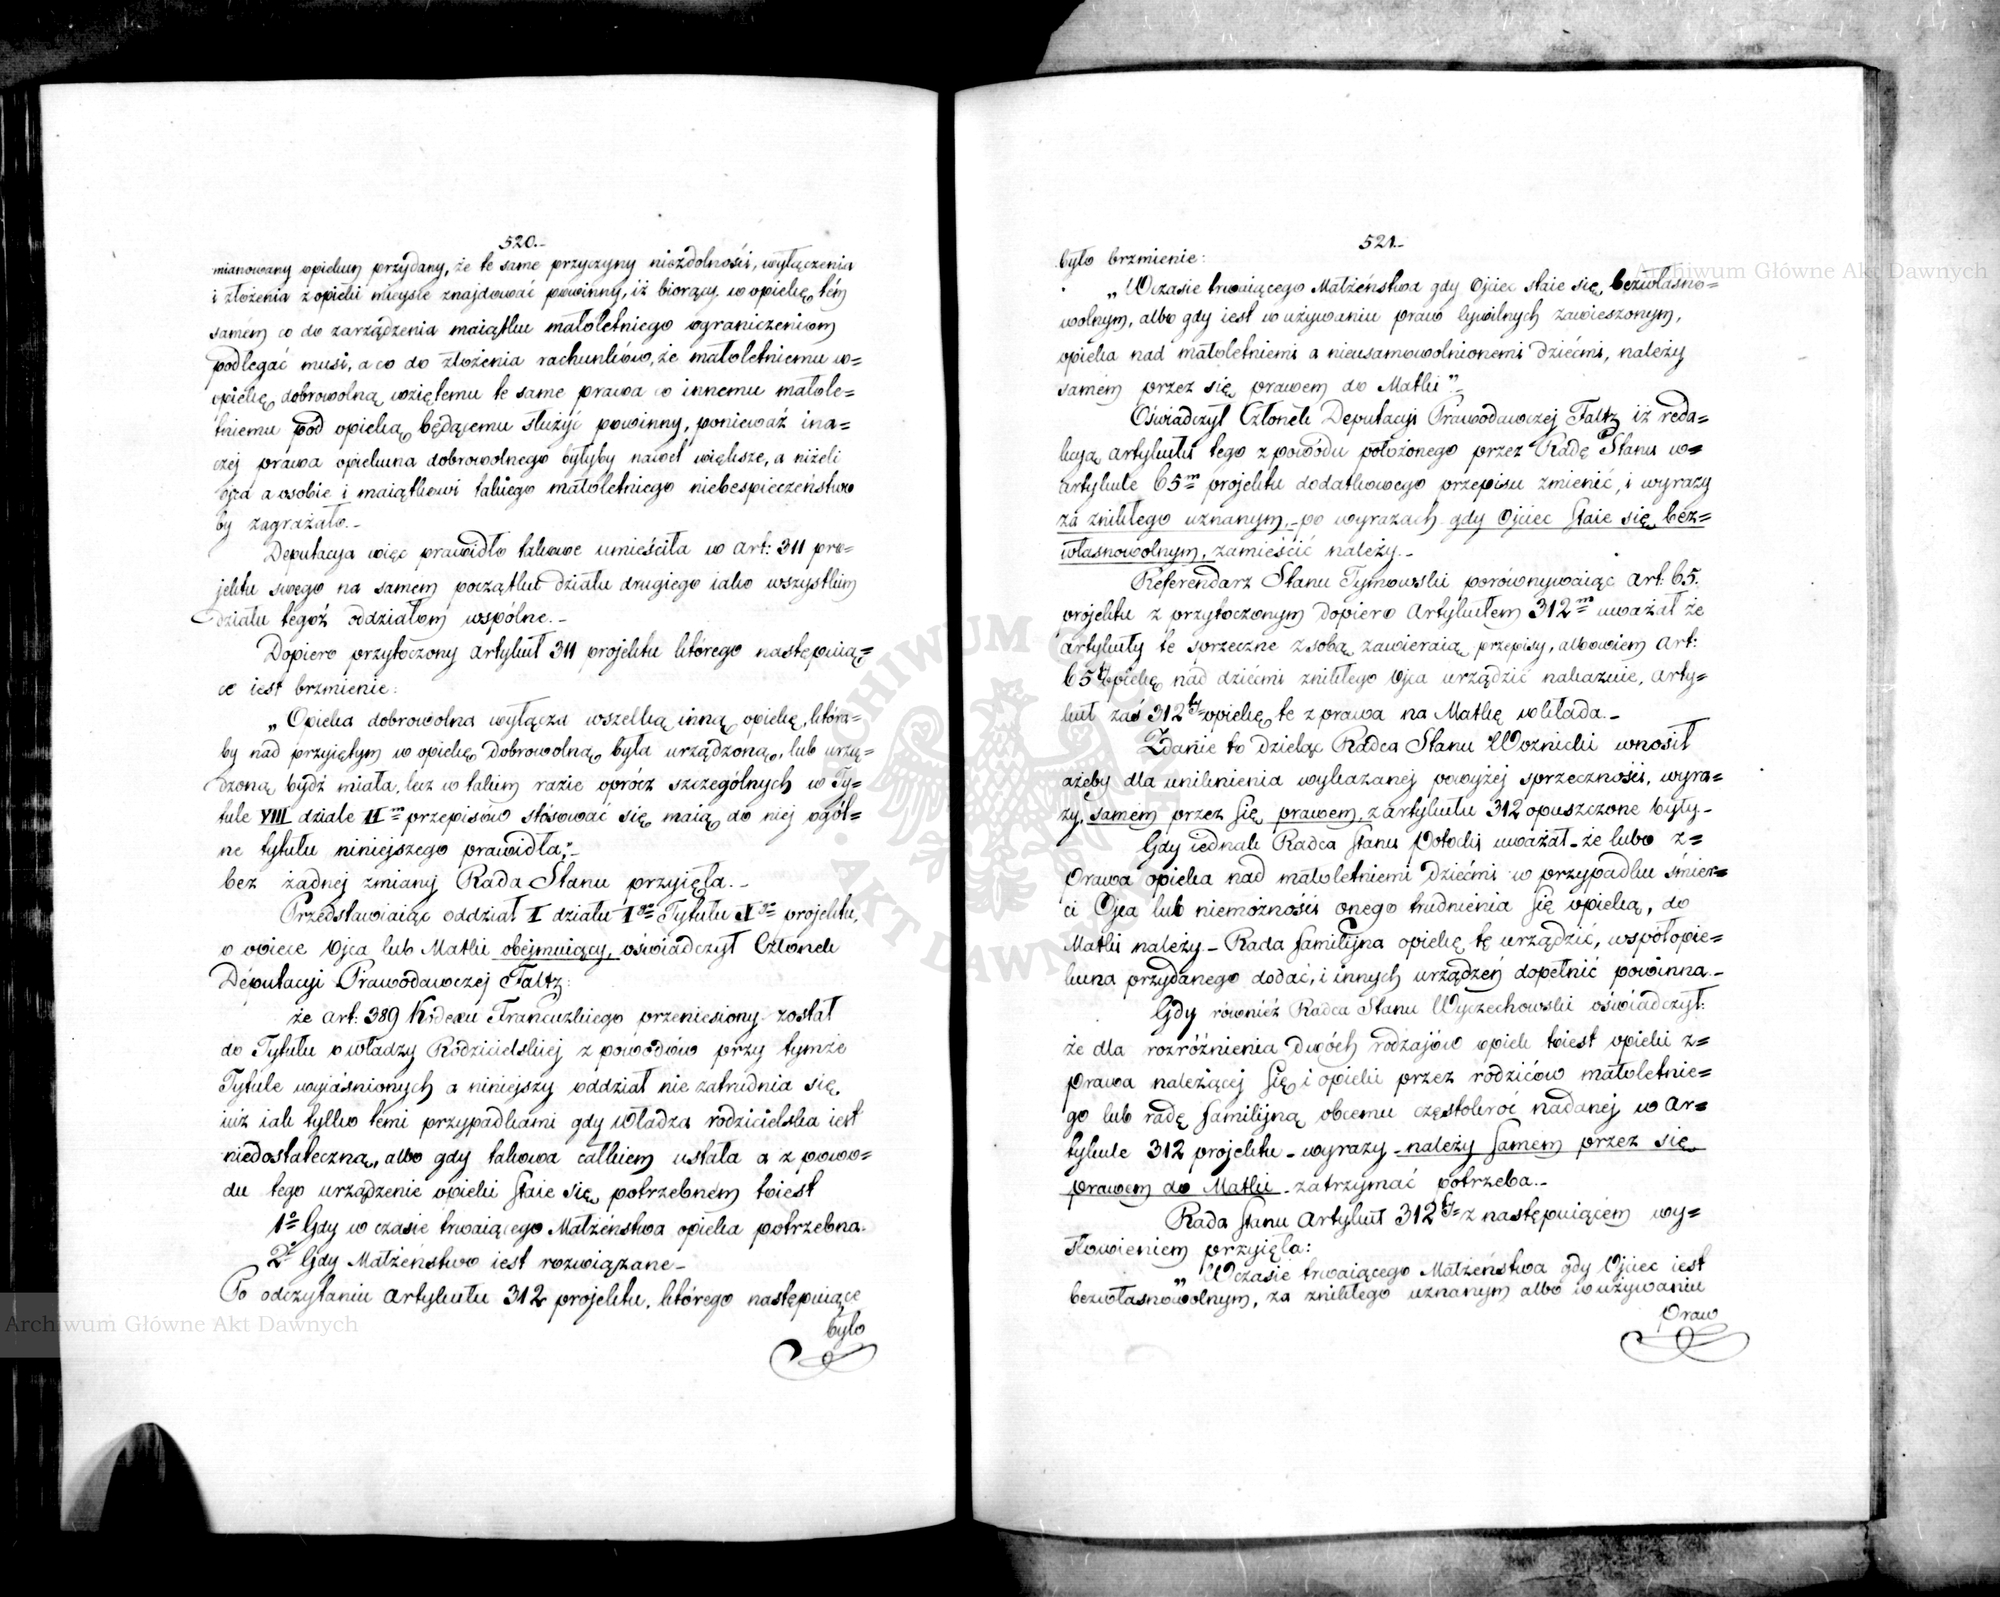 520.
mianowany opiekun przydany, że te same przyczyny niezdolności, wyłączenia
i złożenia z opieki mieysce znajdować powinny, iż biorący w opiekę tém
samém co do zarządzenia maiątku małoletniego ograniczeniom
podlegać musi, a co do złożenia rachunków, że małoletniemu w=
opiekę dobrowolną wziętemu te same prawa co innemu małole=
tniemu pod opieką będącemu służyć powinny, ponieważ ina=
czej prawa opiekuna dobrowolnego byłyby nawet większe, a niżeli
ojca a osobie i maiątkowi takiego małoletniego niebespieczeństwo
by zagrażało._
Deputacya więc prawidło takowe umieściła w art: 311 pro=
jektu swego na samem początku działu drugiego iako wszystkim
działu tegoż oddziałom wspólne._
Dopiero przytoczony artykuł 311 projektu którego następuią=
ce iest brzmienie:
„Opieka dobrowolna wyłącza wszelką inną opiekę, która=
by nad przyiętym w opiekę dobrowolną była urządzoną, lub urzą=
dzoną bydź miała, lecz w takim razie oprócz szczególnych w Ty=
tule VIII dziale II m przepisów stósować się maią do niej ogól=
ne tytułu niniejszego prawidła,"_
bez żadnej zmiany Rada Stanu przyięła._
Przedstawiaiąc oddział I działu I go Tytułu X go projektu,
o opiece Ojca lub Matki obejmuiący, oświadczył Członek
Deputacyi Prawodawczej Faltz:
że art: 389 Kodexu Francuzkiego przeniesiony został
do Tytułu o władzy Rodzicielskiej z powodów przy tymże
Tytule wyiaśnionych a niniejszy oddział nie zatrudnia się
iuż iak tylko temi przypadkami gdy władza rodzicielska iest
niedostateczną, albo gdy takowa całkiem ustała a z powo=
du tego urządzenie opieki staie się potrzebném toiest
1o Gdy w czasie trwaiącego Małżeństwa opieka potrzebna.
2o Gdy Małżeństwo iest rozwiązane_
Po odczytaniu artykułu 312 projektu, którego następuiące
było
521.
było brzmienie:
„W czasie trwaiącego Małżeństwa gdy Ojciec staie się bezwłasno=
wolnym, albo gdy iest w używaniu praw cywilnych zawieszonym,
opieka nad małoletniemi a nieusamowolnionemi dziećmi, należy
samém przez się prawem do Matki"_
Oświadczył Członek Deputacyi Prawodawczej Faltz iż reda=
kcyą artykułu tego z powodu położonego przez Radę Stanu w=
artykule 65 m projektu dodatkowego przepisu zmienić, i wyrazy
za znikłego uznanym,_ po wyrazach gdy Ojciec staie się bez=
własnowolnym, zamieścić należy._
Referendarz Stanu Tymowski porównywaiąc art: 65.
projektu z przytoczonym dopiero Artykułem 312 m uważał że
artykuły te sprzeczne z sobą zawieraią przepisy, albowiem art:
65 ty opiekę nad dziećmi znikłego Ojca urządzić nakazuie, arty=
kuł zaś 312 ty opiekę te z prawa na Matkę wkłada._
Zdanie to dzieląc Radca Stanu Woznicki wnosił
ażeby dla uniknienia wykazanej powyżej sprzeczności, wyra=
zy, samém przez się prawem, z artykułu 312 opuszczone były_
Gdy iednak Radca Stanu Potocki uważał_ że lubo z=
prawa opieka nad małoletniemi dziećmi w przypadku śmier=
ci Ojca lub niemożności onego trudnienia się opieką, do
Matki należy_ Rada familijna opiekę tę urządzić, współopie=
kuna przydanego dodać, i innych urządzeń dopełnić powinna._
Gdy również Radca Stanu Wyczechowski oświadczył:
że dla rozróżnienia dwóch rodzajów opiek toiest opieki z=
prawa należącej się i opieki przez rodziców małoletnie=
go lub radę familijną obcemu częstokroć nadanej w ar=
tykule 312 projektu_ wyrazy_ należy samem przez się
prawem do Matki_ zatrzymać potrzeba._
Rada Stanu Artykuł 312 ty z następuiącém wy=
słowieniem przyięła:
„W czasie trwaiącego Małżeństwa gdy Ojciec iest
bezwłasnowolnym, za znikłego uznanym albo w używaniu
praw
Archiwum Główne Akt Dawnych
Archiwum Główne Akt Dawnych